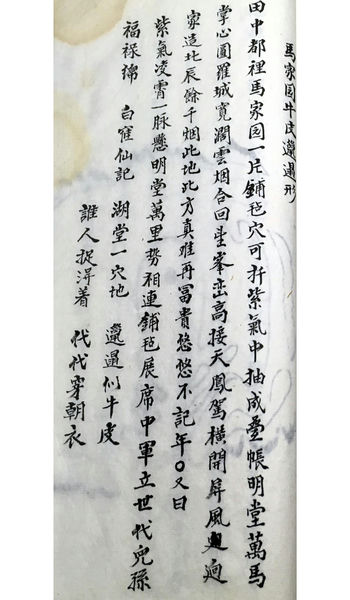 馬家园牛皮邋遢形
田中都裡馬家园一片鋪毡穴可扦紫氣中抽成疊帳明堂萬馬
掌心圓羅城寬濶雲烟合回星峯峦高接天鳳駕橫開屏風廻
家造北辰餘千烟此地此方真难再冨貴悠悠不記年〇又曰
紫氣凌霄一脉懸明堂萬里势相連鋪毡展席中軍立世代兒孫
福禄綿 白隺仙記 湖堂一穴地 邋遢似牛皮
誰人捉淂着 代代穿朝衣